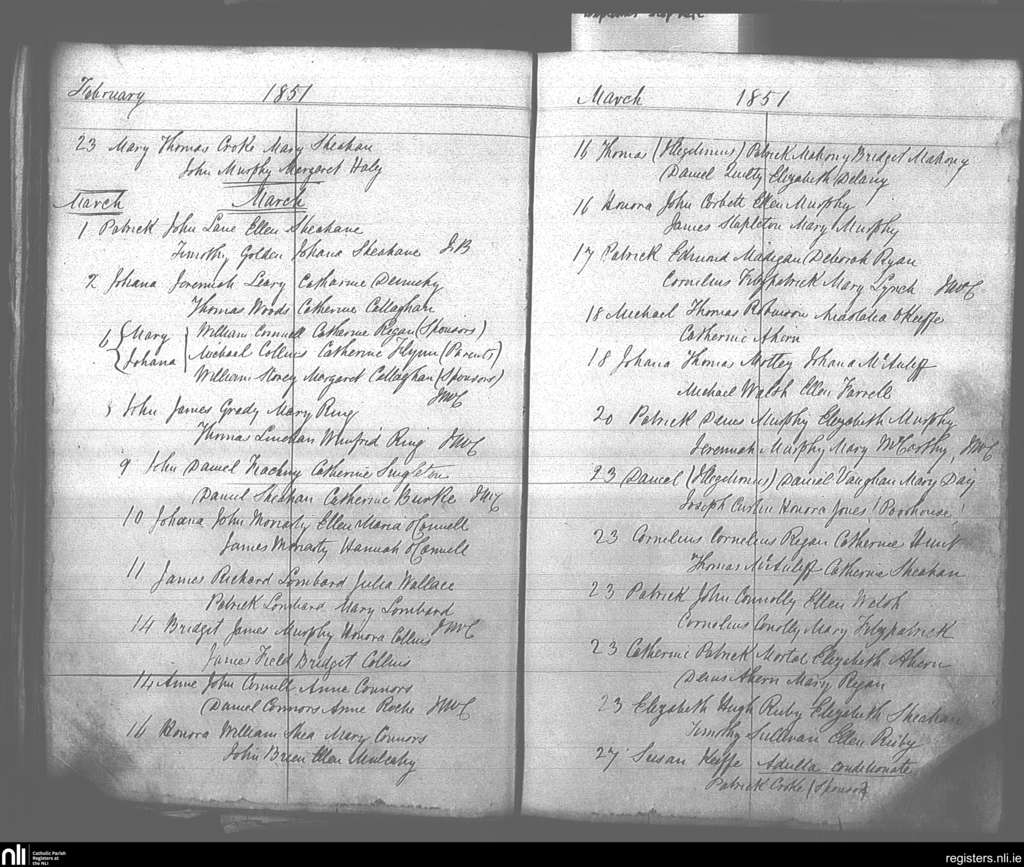 February 1851
23 Mary Thomas Croke Mary Sheahan
John Murphy Margaret Haly
March March
1 Patrick John Lane Ellen Sheahane
Timothy Golden Johana Sheahane
2 Johana Jeremiah Leary Catharine Dennehy
Thomas Woods Catherine Callaghan
6 Mary William Connell Catherine Regan (Sponsors)
Johana Michael Collins Catherine Flynn (Parents)
William Stoney Margaret Callaghan (Sponsors)
JWC
5 John James Grady Mary Ring
Thomas Linehan Winifrid Ring JWC
9 John Daniel Catherine Singleton
Daniel Sheahan Catherine Burke
10 Johana John Moriarty Ellen Maria O'Connell
James Moriarty Hannah O'Connell
11 James Richard Lombard Julia Wallace
Patrick Lombard Mary Lombard
14 Bridget James Murphy Honora Collins JWC
James Field Bridget Collins
14 Anne John Connell Anne Connors
Daniel Connors Anne Roche JWC
16 Honora William Shea Mary Connors
John Brien Ellen Mulcahy
March 1851
16 Thomas (Illegitimus) Patrick Mahony Bridget Mahony
Daniel Quilty Elizabeth Delany
16 Honora John Corbett Ellen Murphy
James Stapleton Mary Murphy
17 Patrick Edmund Madigan Deborah Ryan
Cornelius Fitzpatrick Mary Lynch JWC
18 Michael Thomas Robinson Anastatia O'Keeffe
Catherine Ahern
18 Johana Thomas Mottey Johana McAuleff
Michael Walsh Ellen Farrell
20 Patrick Denis Murphy Elizabeth Murphy
Jeremiah Murphy Mary McCarthy JWC
23 Daniel (Illegitimus) Daniel Vaughan Mary Day
Joseph Curtin Honora Jones (Poorhouse)
23 Cornelius Cornelius Regan Catherine Hunt
Thomas McAuleff Catherine Sheahan
23 Patrick John Connolly Ellen Walsh
Cornelius Conolly Mary Fitzpatrick
23 Catherine Patrick Mortal Elizabeth Ahern
Denis Ahern Mary Ryan
23 Elizabeth Hugh Ruby Elizabeth Sheahan
Timothy Sullivan Ellen Ruby
27 Susan Keiffe Adulta conditionate
Patrick Croke (Sponsor)
nli Catholic Parish Registers at the NLI
registers.nli.ie